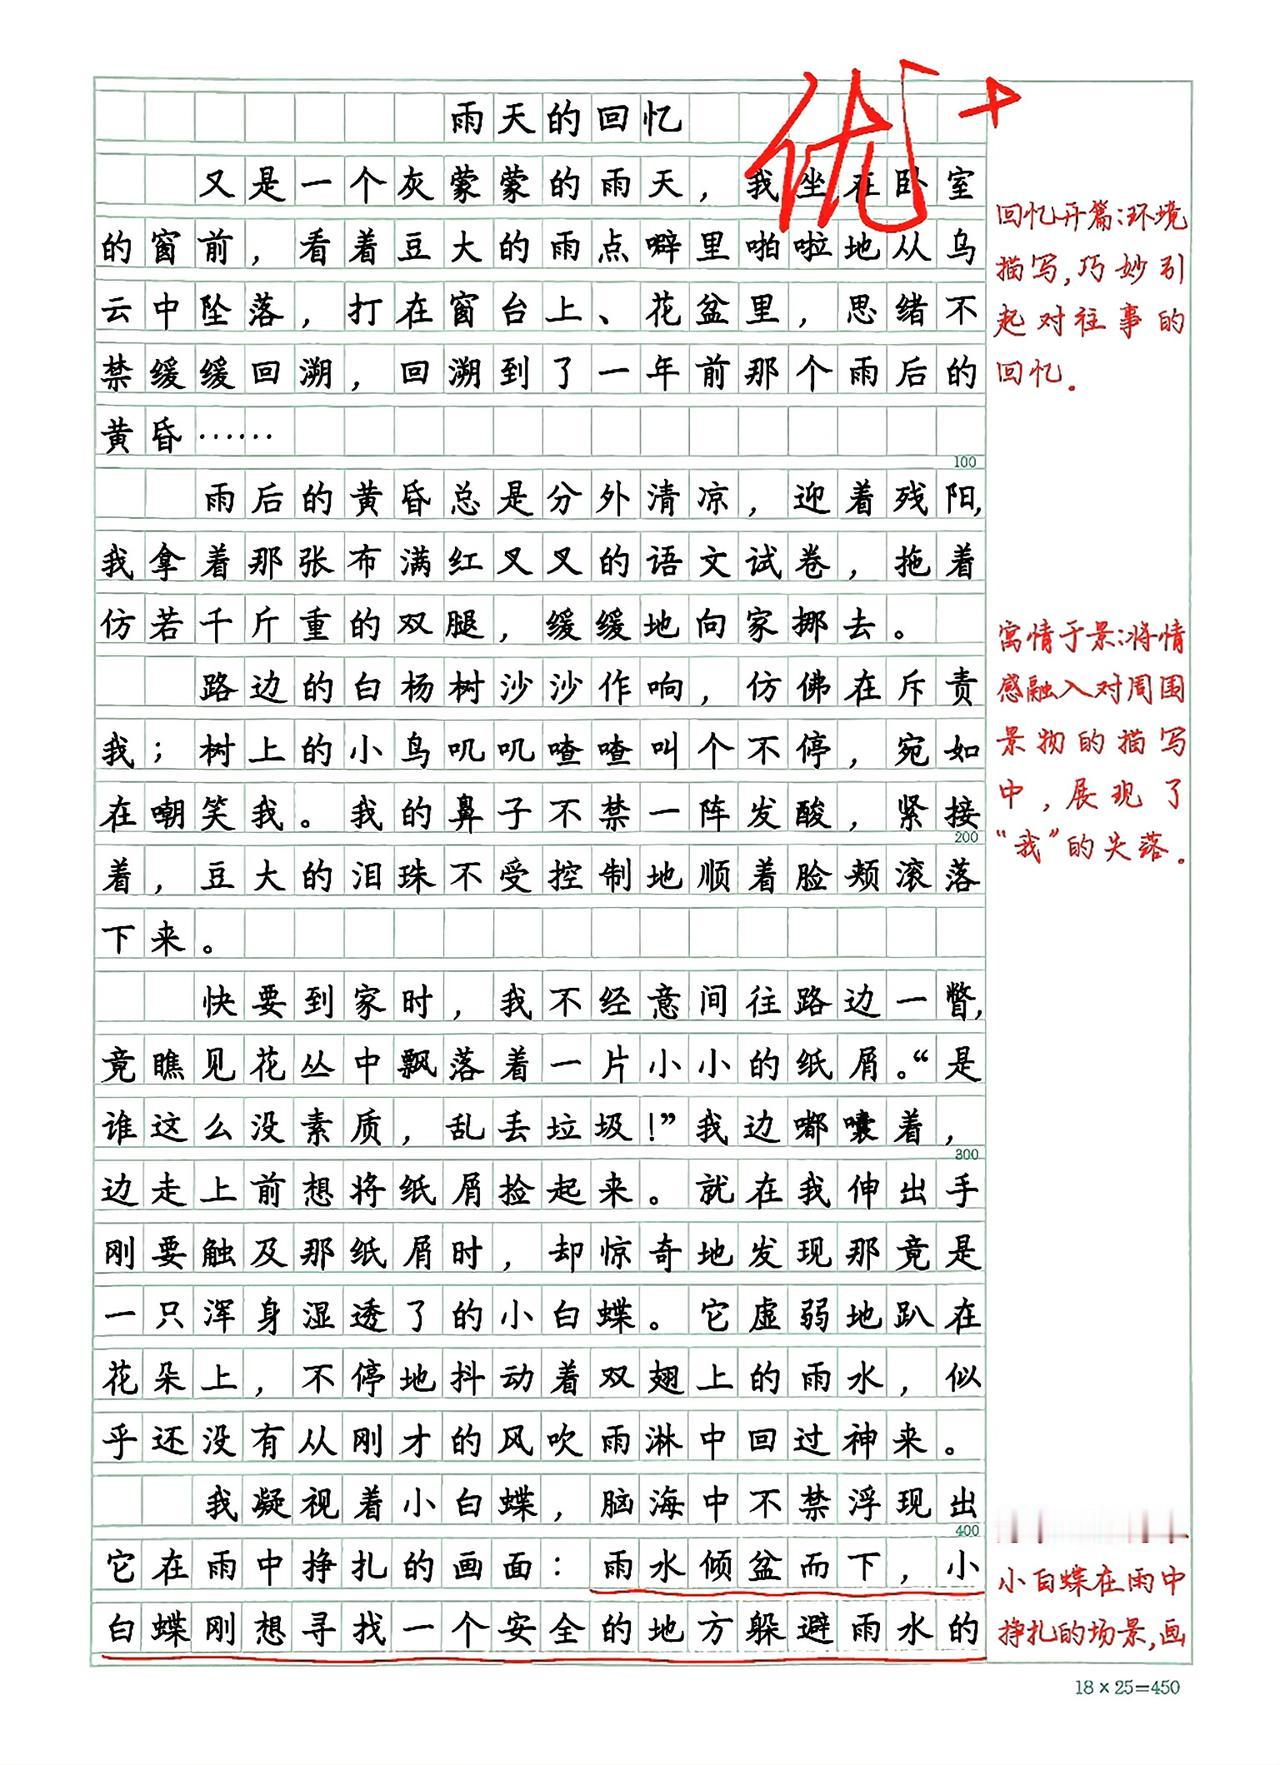 雨天的回忆
优+
又是一个灰蒙蒙的雨天，我坐在卧室
的窗前，看着豆大的雨点噼里啪啦地从乌
云中坠落，打在窗台上、花盆里，思绪不
禁缓缓回溯，回溯到了一年前那个雨后的
黄昏……
100
雨后的黄昏总是分外清凉，迎着残阳，
我拿着那张布满红叉叉的语文试卷，拖着
仿若千斤重的双腿，缓缓地向家挪去。
路边的白杨树沙沙作响，仿佛在斥责
我；树上的小鸟叽叽喳喳叫个不停，宛如
在嘲笑我。我的鼻子不禁一阵发酸，紧接
200
着，豆大的泪珠不受控制地顺着脸颊滚落
下来。
快要到家时，我不经意间往路边一瞥，
竟瞧见花丛中飘落着一片小小的纸屑。“是
谁这么没素质，乱丢垃圾！”我边嘟囔着，
300
边走上前想将纸屑捡起来。就在我伸出手
刚要触及那纸屑时，却惊奇地发现那竟是
一只浑身湿透了的小白蝶。它虚弱地趴在
花朵上，不停地抖动着双翅上的雨水，似
乎还没有从刚才的风吹雨淋中回过神来。
我凝视着小白蝶，脑海中不禁浮现出
400
它在雨中挣扎的画面：雨水倾盆而下，小
白蝶刚想寻找一个安全的地方躲避雨水的
回忆开篇：环境
描写，巧妙引
起对往事的
回忆．
寓情于景：将情
感融入对周围
景物的描写
中，展现了
“我”的失落．
小白蝶在雨中
挣扎的场景，画
18×25=450